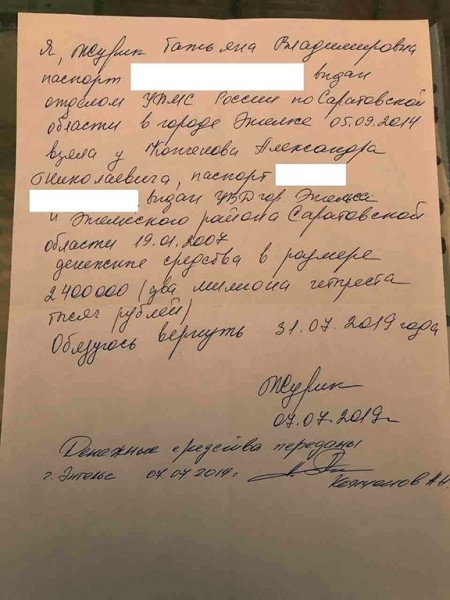 Я, Журик Татьяна Владимировна
паспорт выдан
отделом УФМС России по Саратовской
области в городе Энгельсе 05.09.2014
взяла у Александра
Николаевича, паспорт
выдан УВД гор. Энгельса
и Энгельсского района Саратовской
области 19.01.2007
денежные средства в размере
2400000 (два милиона четыреста
тысяч рублей)
Обязуюсь вернуть 31.07.2019 года
Журик
07.07.2019г
Денежные средства переданы
г. Энгельс 07.07.2019г